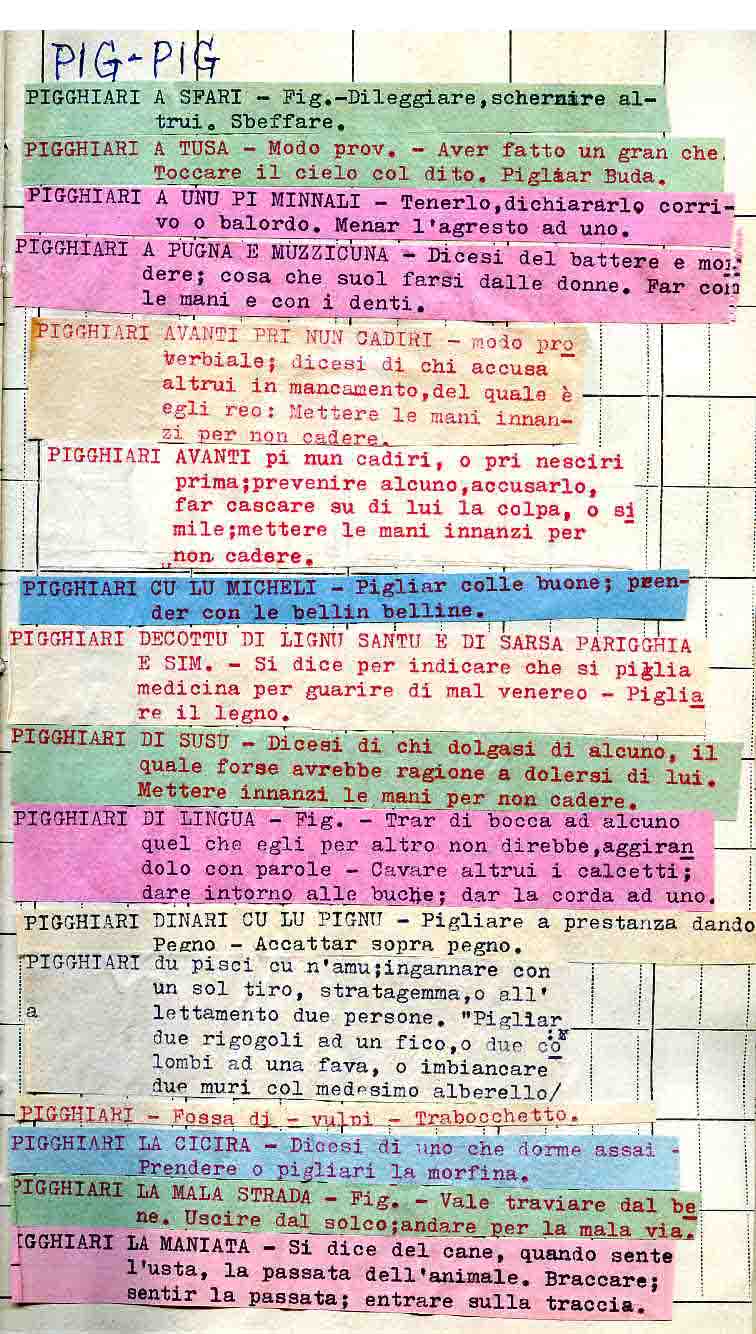 PIG-PIG
PIGGHIARI A SFARI - Fig.-Dileggiare,schernire al-
trui. Sbeffare.
PIGGHIARI A TUSA - Modo prov. - Aver fatto un gran che.
Toccare il cielo col dito. Pigliar Buda.
PIGGHIARI A UNU PI MINNALI - Tenerlo,dichiararlo corri-
vo o balordo. Menar l'agresto ad uno.
PIGGHIARI A PUGNA E MUZZICUNA - Dicesi del battere e mor-
dere; cosa che suol farsi dalle donne. Far con
le mani e con i denti.
PIGGHIARI AVANTI PRI NUN CADIRI - modo pro
verbiale; dicesi di chi accusa
altrui in mancamento,del quale è
egli reo: Mettere le mani innan-
zi per non cadere.
PIGGHIARI AVANTI pi nun cadiri, o pri nesciri
prima;prevenire alcuno,accusarlo,
far cascare su di lui la colpa, o si
mile;mettere le mani innanzi per
non cadere.
PIGGHIARI CU LU MICHELI - Pigliar colle buone; pren-
der con le bellin belline.
PIGGHIARI DECOTTU DI LIGNU SANTU E DI SARSA PARIGGHIA
E SIM. - Si dice per indicare che si piglia
medicina per guarire di mal venereo - Piglia
re il legno.
PIGGHIARI DI SUSU - Dicesi di chi dolgasi di alcuno, il
quale forse avrebbe ragione a dolersi di lui.
Mettere innanzi le mani per non cadere.
PIGGHIARI DI LINGUA - Fig. - Trar di bocca ad alcuno
quel che egli per altro non direbbe,aggiran
dolo con parole - Cavare altrui i calcetti;
dare intorno alle buche; dar la corda ad uno.
PIGGHIARI DINARI CU LU PIGNU - Pigliare a prestanza dando
Pegno - Accattar sopra pegno.
PIGGHIARI du pisci cu n'amu;ingannare con
un sol tiro, stratagemma,o all'
a lettamento due persone. "Pigliar
due rigogoli ad un fico,o due co
lombi ad una fava, o imbiancare
due muri col medesimo alberello/
PIGGHIARI - Fossa di - vulpi - Trabocchetto.
PIGGHIARI LA CICIRA - Dicesi di uno che dorme assai -
Prendere o pigliari la morfina.
PIGGHIARI LA MALA STRADA - Fig. - Vale traviare dal be
ne. Uscire dal solco;andare per la mala via.
IGGHIARI LA MANIATA - Si dice del cane, quando sente
l'usta, la passata dell'animale. Braccare;
sentir la passata; entrare sulla traccia.